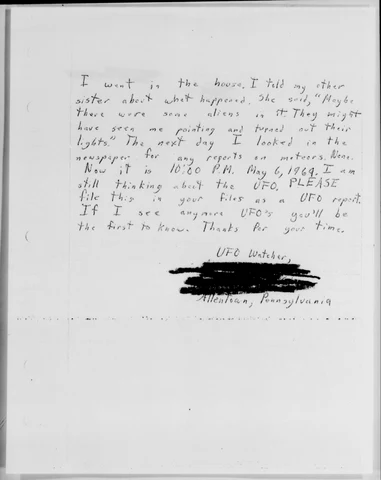 I went in the house. I told my other
sister about what happened. She said, "Maybe
there were some aliens in it. They might
have seen me pointing and turned out their
lights." The next day I looked in the
newspaper for any reports on meteors. None.
Now it is 10:00 P.M. May 6, 1969. I am
still thinking about the UFO. PLEASE
file this in your files as a UFO report.
If I see anymore UFO's you'll be
the first to know. Thanks for your time.
UFO Watcher,
Allentown, Pennsylvania